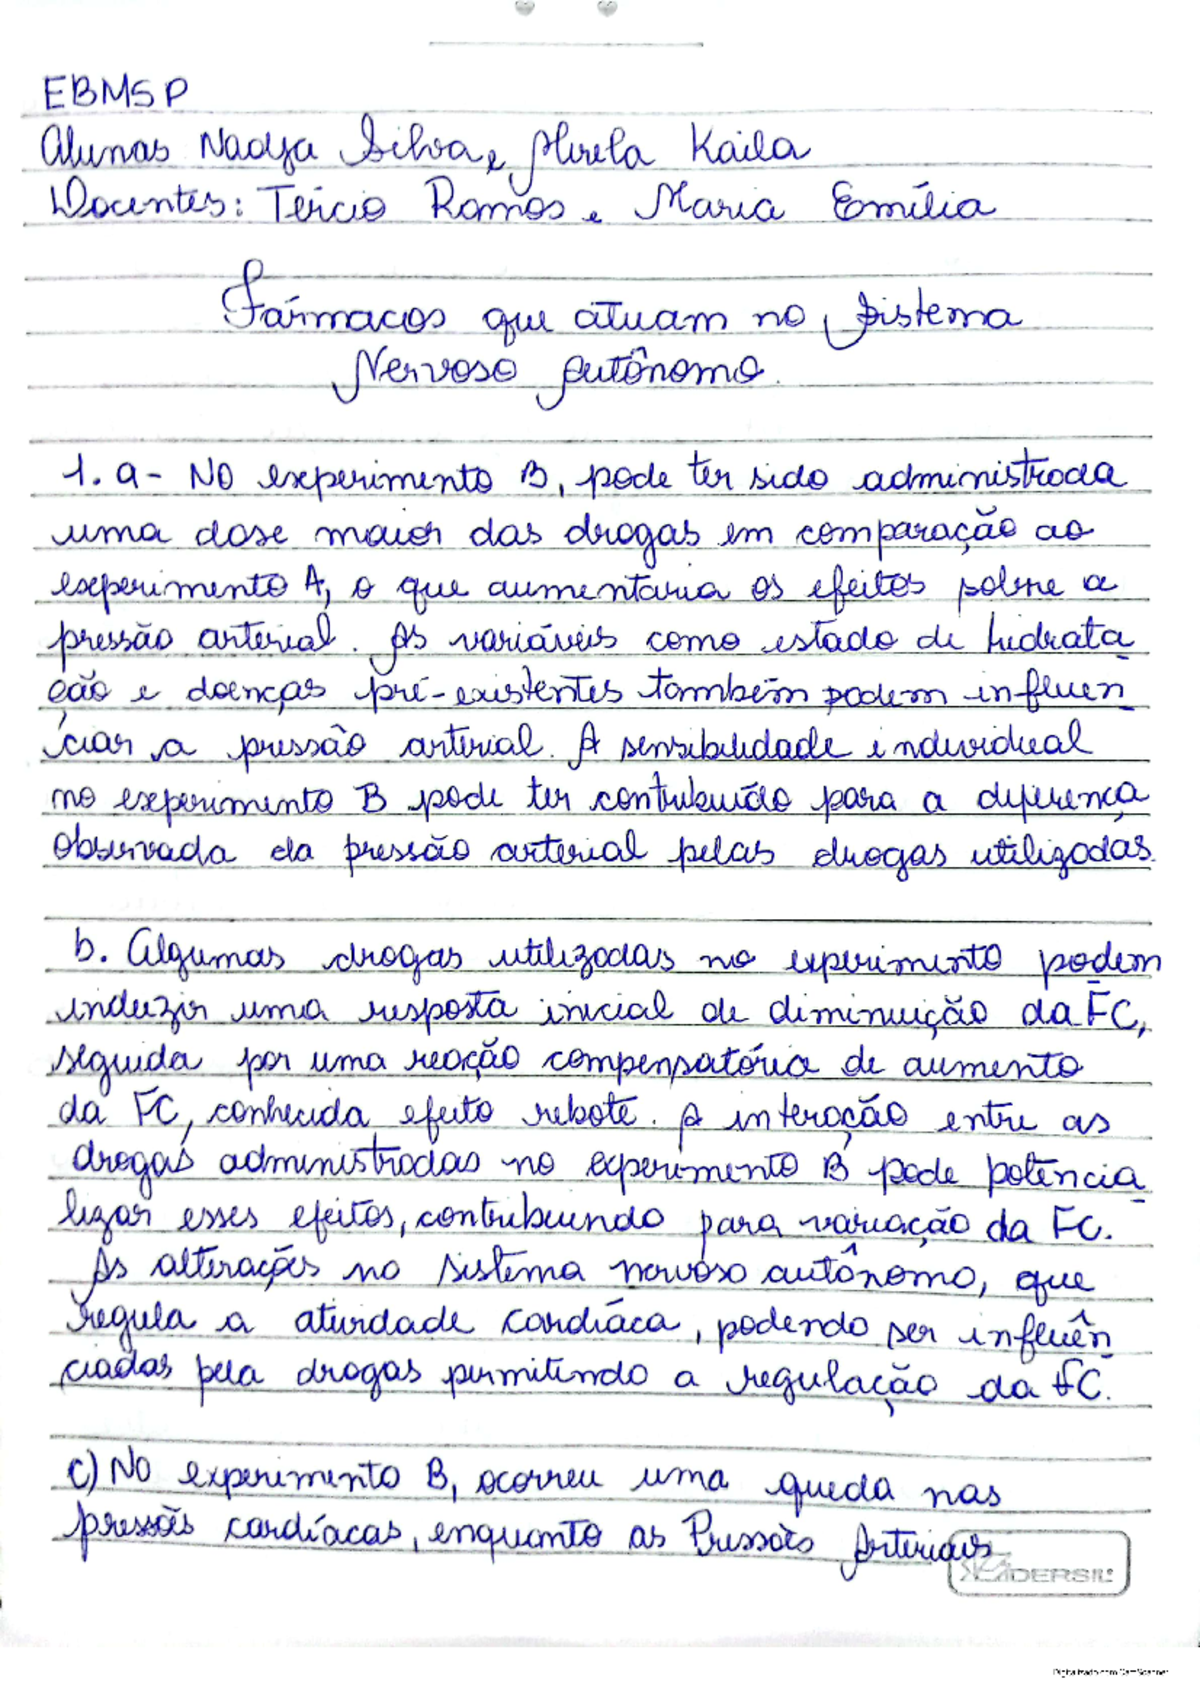 EBMSP
Alunas Nadja Silva e Mirela Kaila
Docentes: Tércio Ramos e Maria Emília
Fármacos que atuam no Sistema
Nervoso Autônomo.
1. a- No experimento B, pode ter sido administrada
uma dose maior das drogas em comparação ao
experimento A, o que aumentaria os efeitos sobre a
pressão arterial. As variáveis como estado de hidrata
ção e doenças pré-existentes também podem influen
ciar a pressão arterial. A sensibilidade individual
no experimento B pode ter contribuído para a diferença
observada da pressão arterial pelas drogas utilizadas.
b. Algumas drogas utilizadas no experimento podem
induzir uma resposta inicial de diminuição da FC,
seguida por uma reação compensatória de aumento
da FC, conhecida efeito rebote. A interação entre as
drogas administradas no experimento B pode potencia
lizar esses efeitos, contribuindo para variação da FC.
As alterações no sistema nervoso autônomo, que
regula a atividade cardíaca, podendo ser influên
ciadas pela drogas permitindo a regulação da FC.
c) No experimento B, ocorreu uma queda nas
pressões cardíacas, enquanto as Pressões Arteriais
Digitalizado com CamScanner